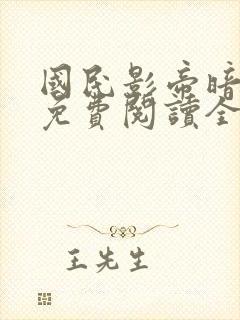 國民影帝暗
免費閱讀全
王先生